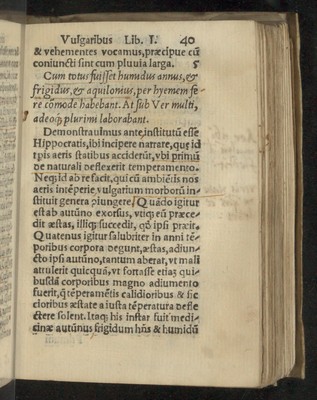 Vulgaribus Lib. I. 40
& vehementes vocamus, præcipue cū
coniuncti sint cum pluuia larga. 5
Cum totus fuisset humidus annus, &
frigidus, & aquilonius, per hyemem fe
re cōmode habebant. At sub Ver multi,
adeoq; plurimi laborabant.
Demonstrauimus ante, institutū esse
Hippocratis, ibi incipere narrare, quę id
tpis aeris statibus acciderūt, vbi primū
de naturali deflexerit temperamento.
Neq; id ab re facit, qui cū ambiētis nos
aeris intēperie, vulgarium morborū in
stituit genera ꝯiungere. Quādo igitur
est ab autūno exorsus, vtiq; eū præce-
dit æstas, illiq; succedit, qđ ipsi præit.
Quatenus igitur salubriter in anni tē-
poribus corpora degunt, æstas, adiun-
cto ipsi autūno, tantum aberat, vt mali
attulerit quicquā, vt fortasse etiaʒ qui-
busdā corporibus magno adiumento
fuerit, q̄ tēperamētis calidioribus & sic
cioribus æstate a iusta tēperatura defle
ctere solent. Itaq; his instar fuit medi-
cinæ autūnus frigidum hñs & humidū